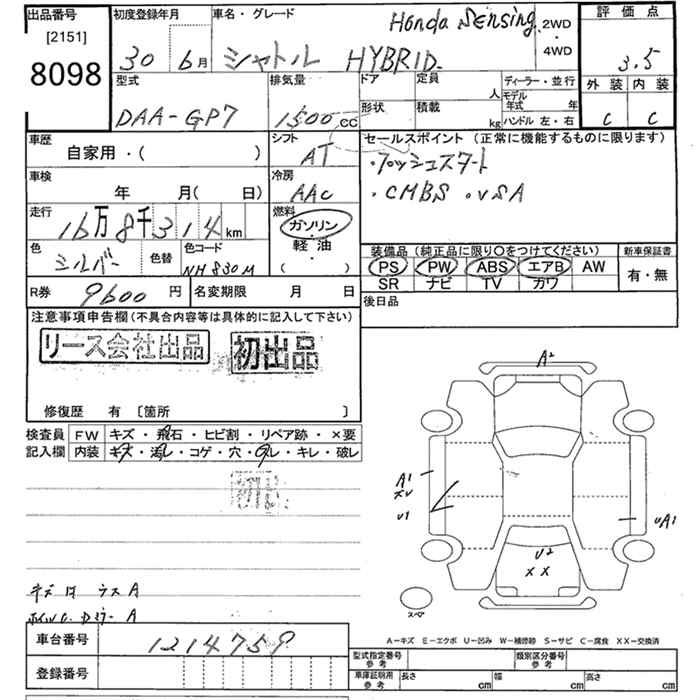 出品番号 初度登録年月 車名・グレード Honda SENSING 2WD・4WD 評価点
[2151]
8098
30 6月 シャトル HYBRID 3.5
型式 排気量 ドア 定員 人 ディーラー・並行 外装 内装
モデル年式 年
DAA-GP7 1500cc 形状 積載 kg ハンドル 左・右 C C
車歴 シフト セールスポイント (正常に機能するものに限ります)
自家用・( ) AT ・プッシュスタート
車検 冷房 ・CMBS ・VSA
年 月( 日) AAC
走行 燃料
16万8千314km ガソリン
色 色替 色コード 軽油 装備品 (純正品に限り○をつけてください) 新車保証書
シルバー NH830M ( ) PS PW ABS エアB AW 有・無
SR ナビ TV カワ
R券 9600円 名変期限 月 日 後日品
注意事項申告欄(不具合内容等は具体的に記入して下さい)
リース会社出品 初出品
修復歴 有 [箇所 ]
検査員 FW キズ・飛石・ヒビ割・リペア跡・×要
記入欄 内装 キズ・汚レ・コゲ・穴・スレ・キレ・破レ
初出
A2
A1
U1
UA1
U2
XX
スペア
キズ ロ ウス A
A
A-キズ E-エクボ U-凹み W-補修跡 S-サビ C-腐食 XX-交換済
車台番号 1214759
登録番号
型式指定番号 参考 類別区分番号 参考
車庫証明用 参考 長さ cm 幅 cm 高さ cm